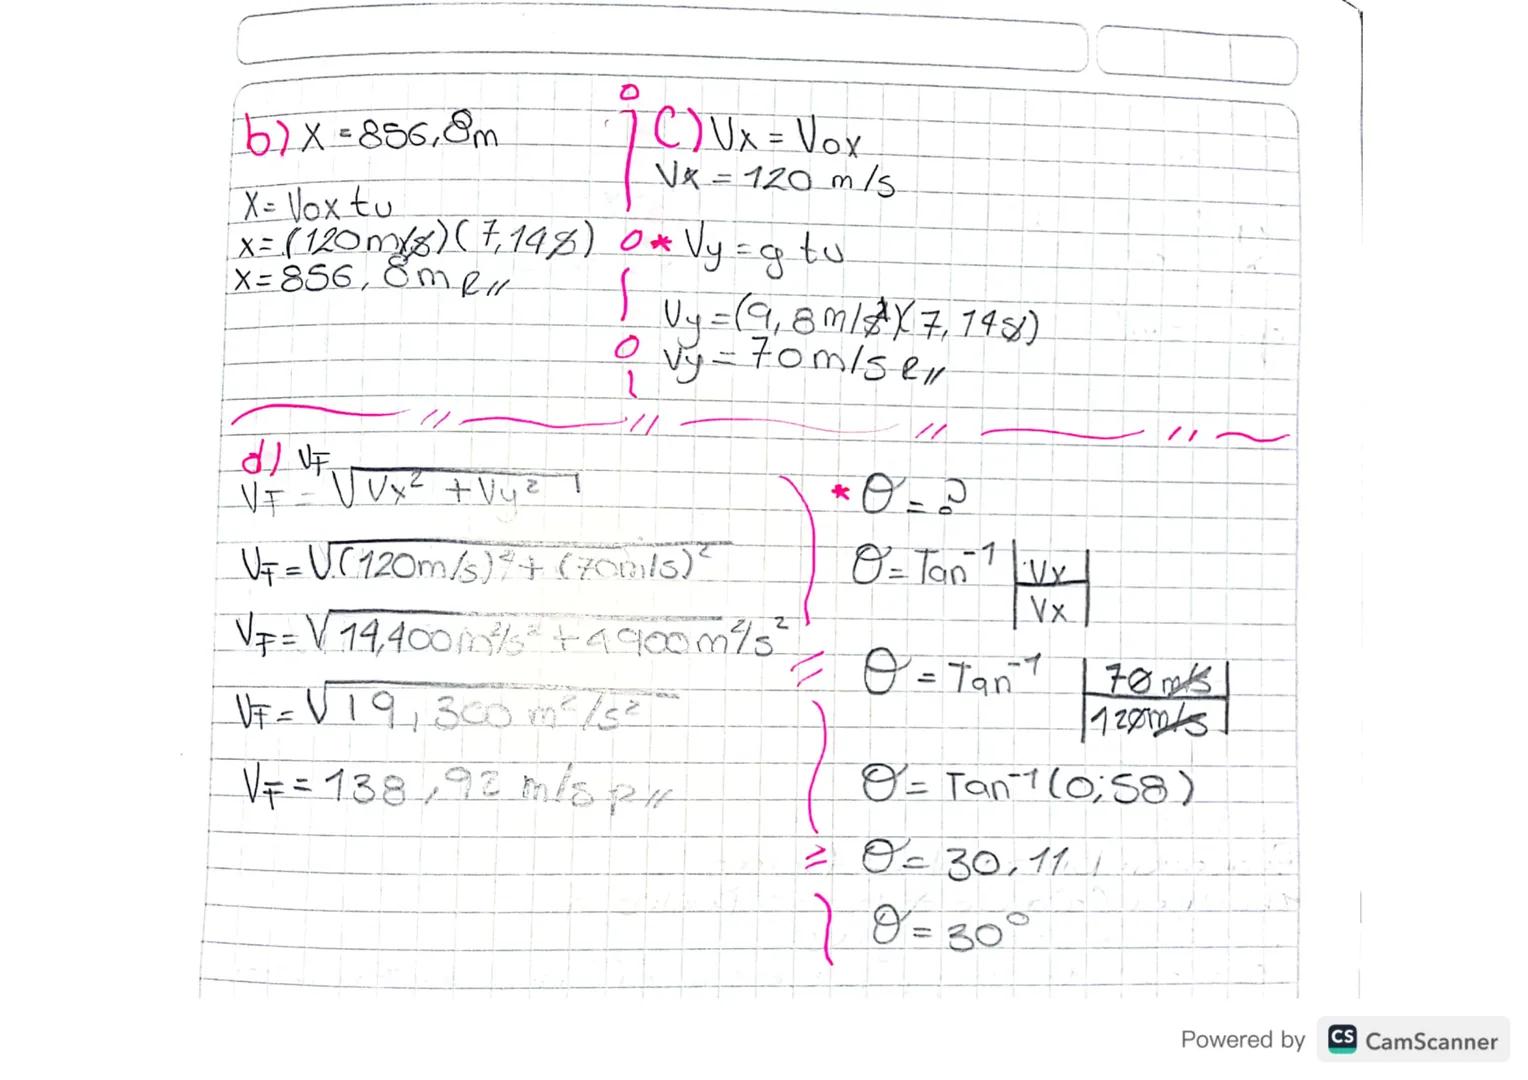 b) X = 856,8m
X = Vox tv
X = (120m/s)(7,14s)
X = 856,8m R//
C) Vx = Vox
Vx = 120 m/s
* Vy = g tv
Vy = (9,8m/s²)(7,14s)
Vy = 70m/s R//
d) VF
VF = √Vx² + Vy²
VF = √(120m/s)² + (70m/s)²
VF = √14,400m²/s² + 4900m²/s²
VF = √19,300 m²/s²
VF = 138,92 m/s R//
* θ = ?
θ = Tan⁻¹ |Vy
Vx|
θ = Tan⁻¹ |70 m/s
120m/s|
θ = Tan⁻¹(0,58)
θ = 30,11
θ = 30°
Powered by CS CamScanner